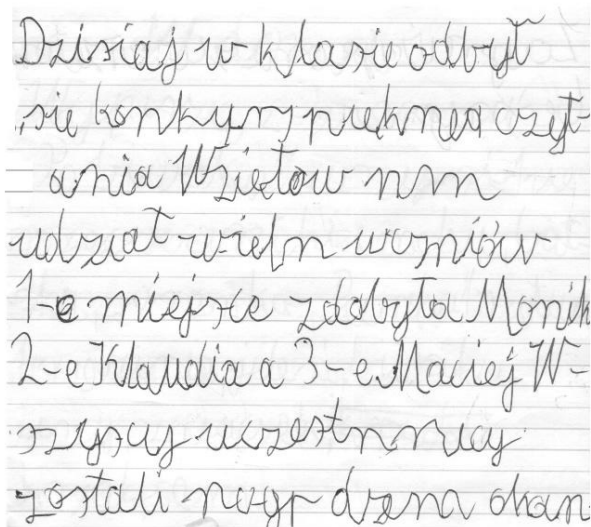 Dzisiaj w klasie odbył
się konkurs pięknea czyt-
ania Wzięłow nm
udział wielu uczniów
1-e miejsce zdobyła Monik
2-e Klaudia a 3-e Maciej W-
szyscy uczestnnicy
zostali